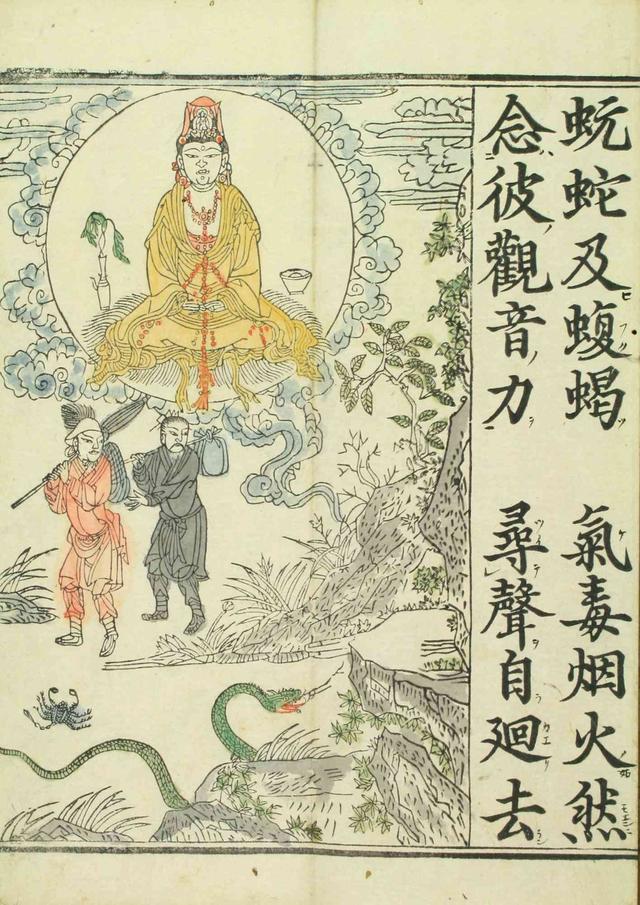 蚖蛇及蝮蝎 氣毒烟火然
念彼觀音力 尋聲自廻去